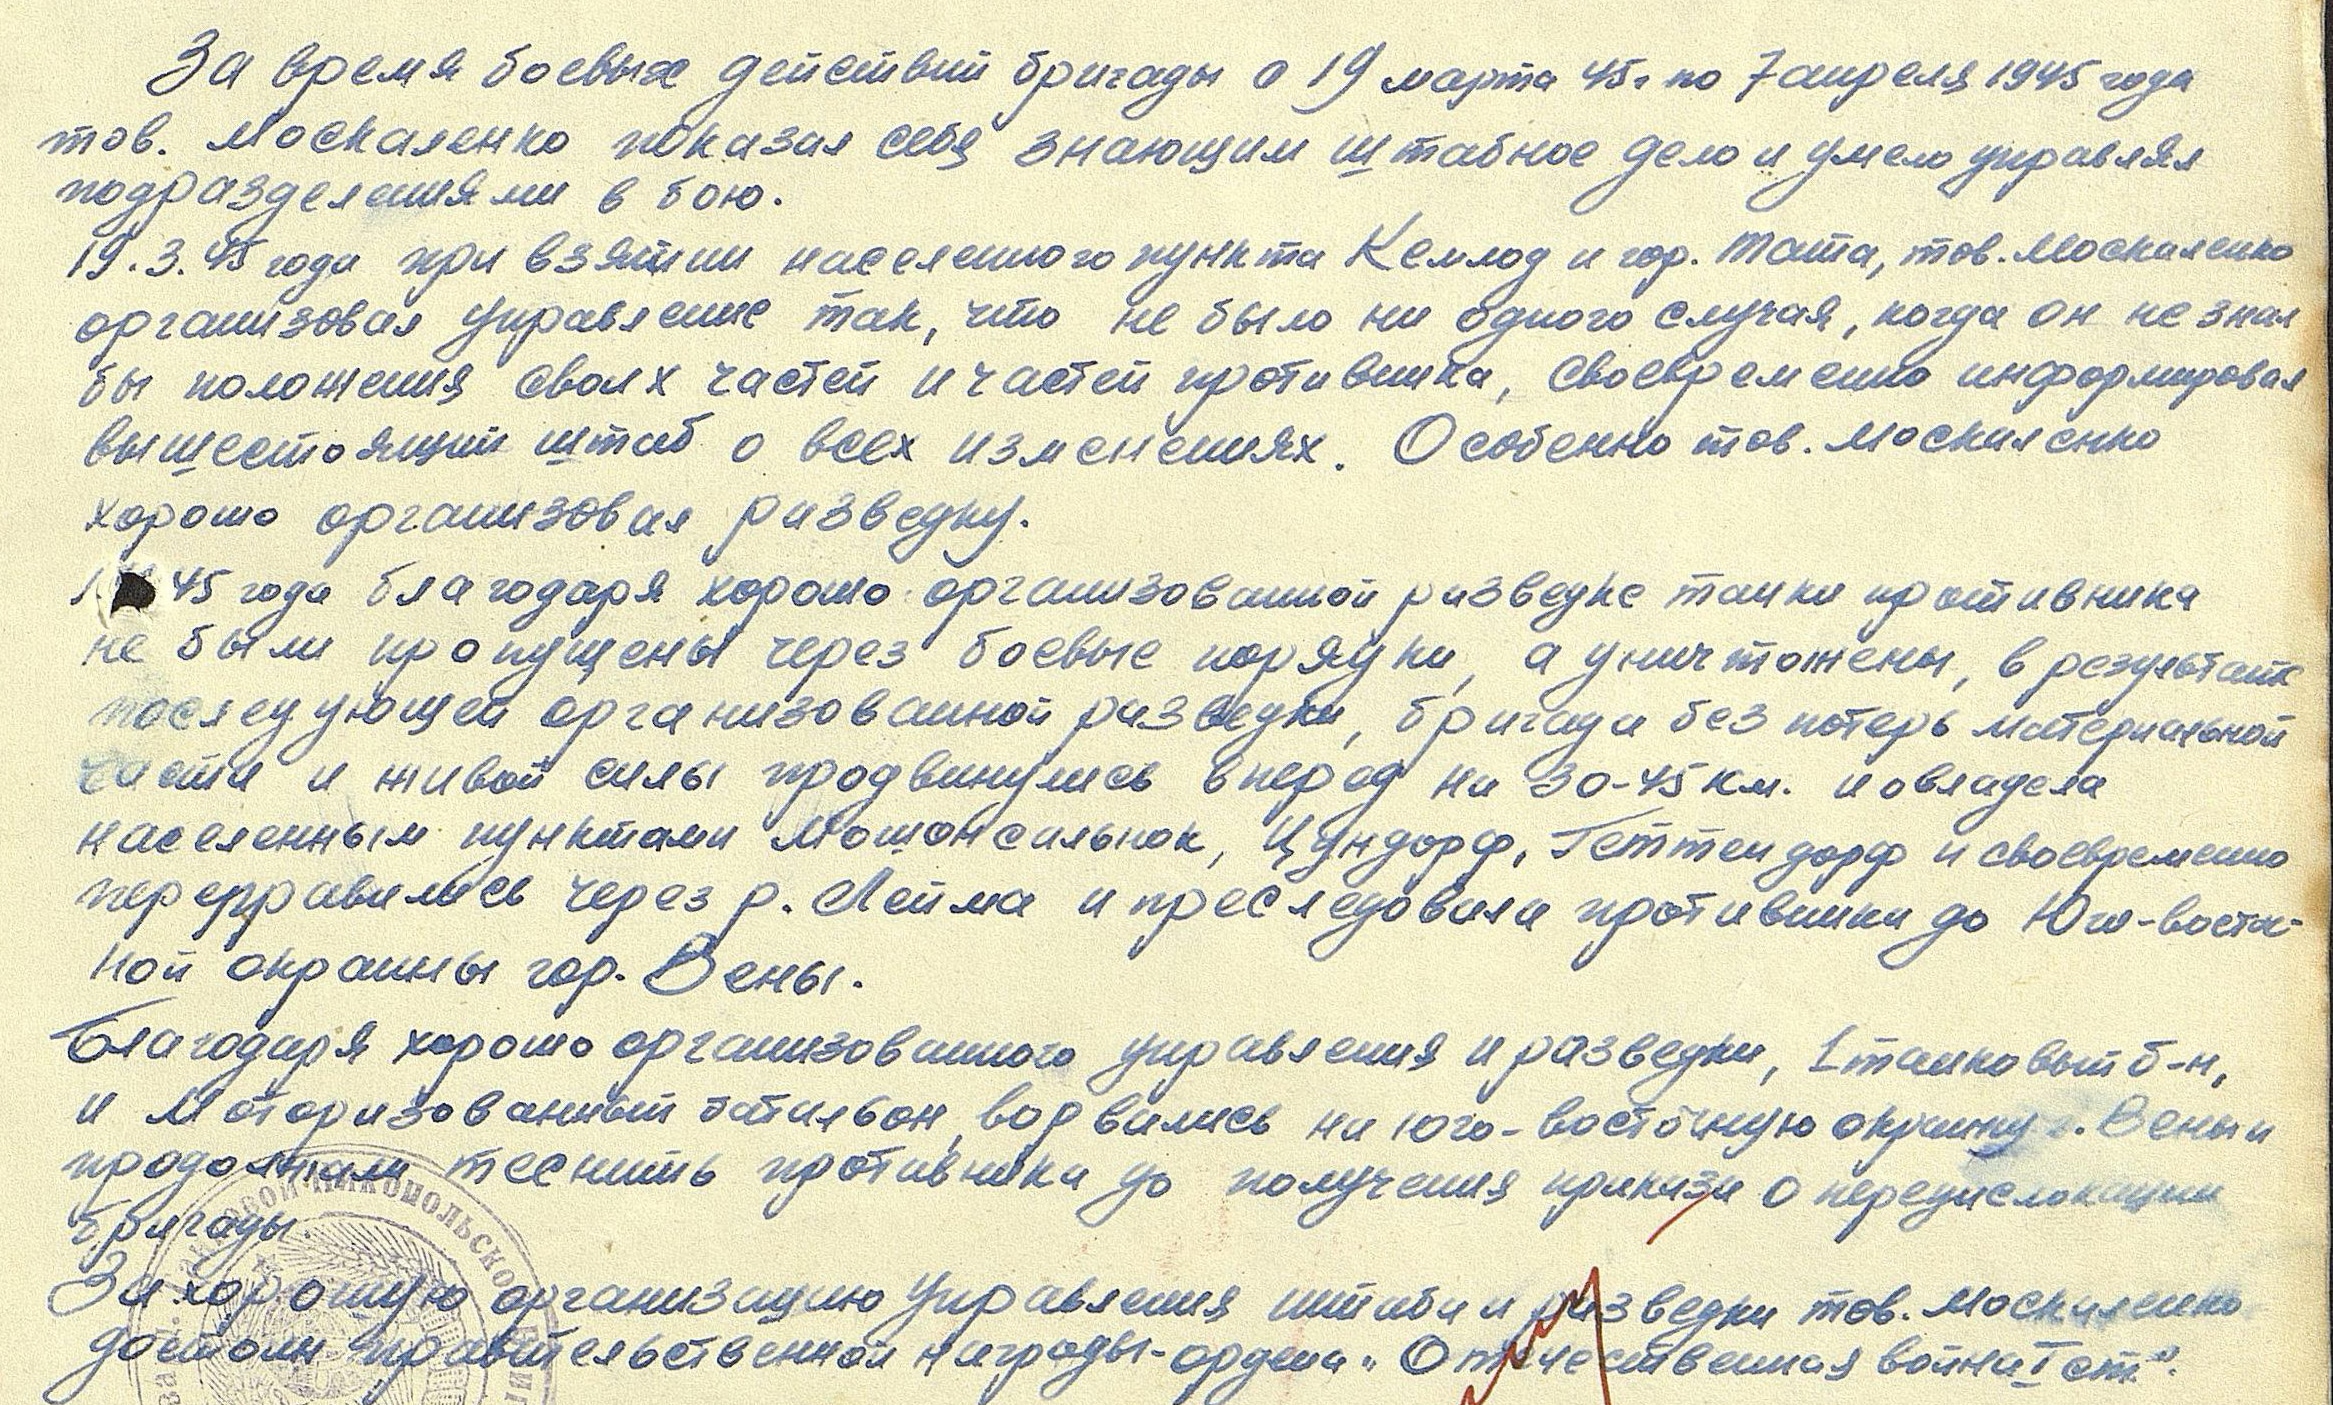 За время боевых действий бригады с 19 марта 45г по 7 апреля 1945 года
тов. Москаленко показал себя знающим штабное дело и умело управлял
подразделениями в бою.
19.3.45 года при взятии населенного пункта Кемлод и гор. Тата, тов. Москаленко
организовал управление так, что не было ни одного случая, когда он не знал
бы положения своих частей и частей противника, своевременно информировал
вышестоящий штаб о всех изменениях. Особенно тов. Москаленко
хорошо организовал разведку.
45 года благодаря хорошо организованной разведке танки противника
не были пропущены через боевые порядки, а уничтожены, в результате
последующей организованной разведки, бригада без потерь материальной
части и живой силы продвинулись вперед на 30-45 км. и овладела
населенным пунктами Мошонсальнок, Цундорф, Геттендорф и своевременно
переправились через р. Лейма и преследовали противника до Юго-восто-
ной окраины гор. Вены.
Благодаря хорошо организованного управления и разведки, 1 танковый б-н,
и Моторизованный батальон, ворвались на юго-восточную окраину г. Вены и
продолжали теснить противника до получения приказа о передислокации
бригады.
За хорошую организацию управления штаба и разведки тов. Москаленко
достоин правительственной награды-ордена „Отечественная война I ст".
ТАНКОВОЙ НИКОПОЛЬСКОЙ